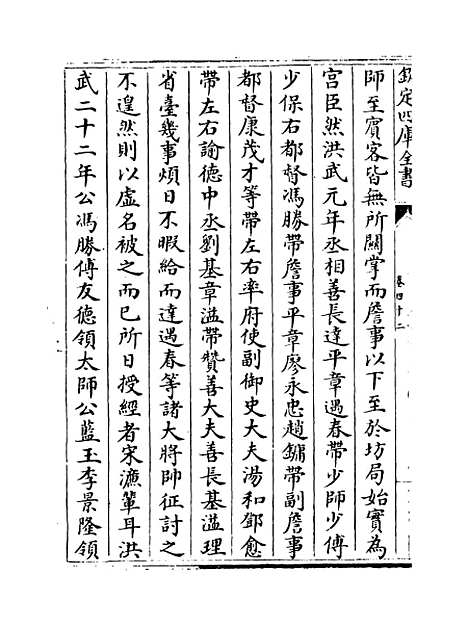 欽定四庫全書
卷四十二
師至賓客皆無所關掌而詹事以下至於坊局始實為
宫臣然洪武元年丞相善長達平章遇春帶少師少傅
少保右都督馮勝帶詹事平章廖永忠趙鏞帶副詹事
都督康茂才等帶左右率府使副御史大夫湯和鄧愈
帶左右諭德中丞劉基章溢帶贊善大夫善長基溢理
省臺幾事煩日不暇給而達遇春等諸大將帥征討之
不遑然則以虚名被之而已所日授經者宋濂輩耳洪
武二十二年公馮勝傅友德領太師公藍玉李景隆領